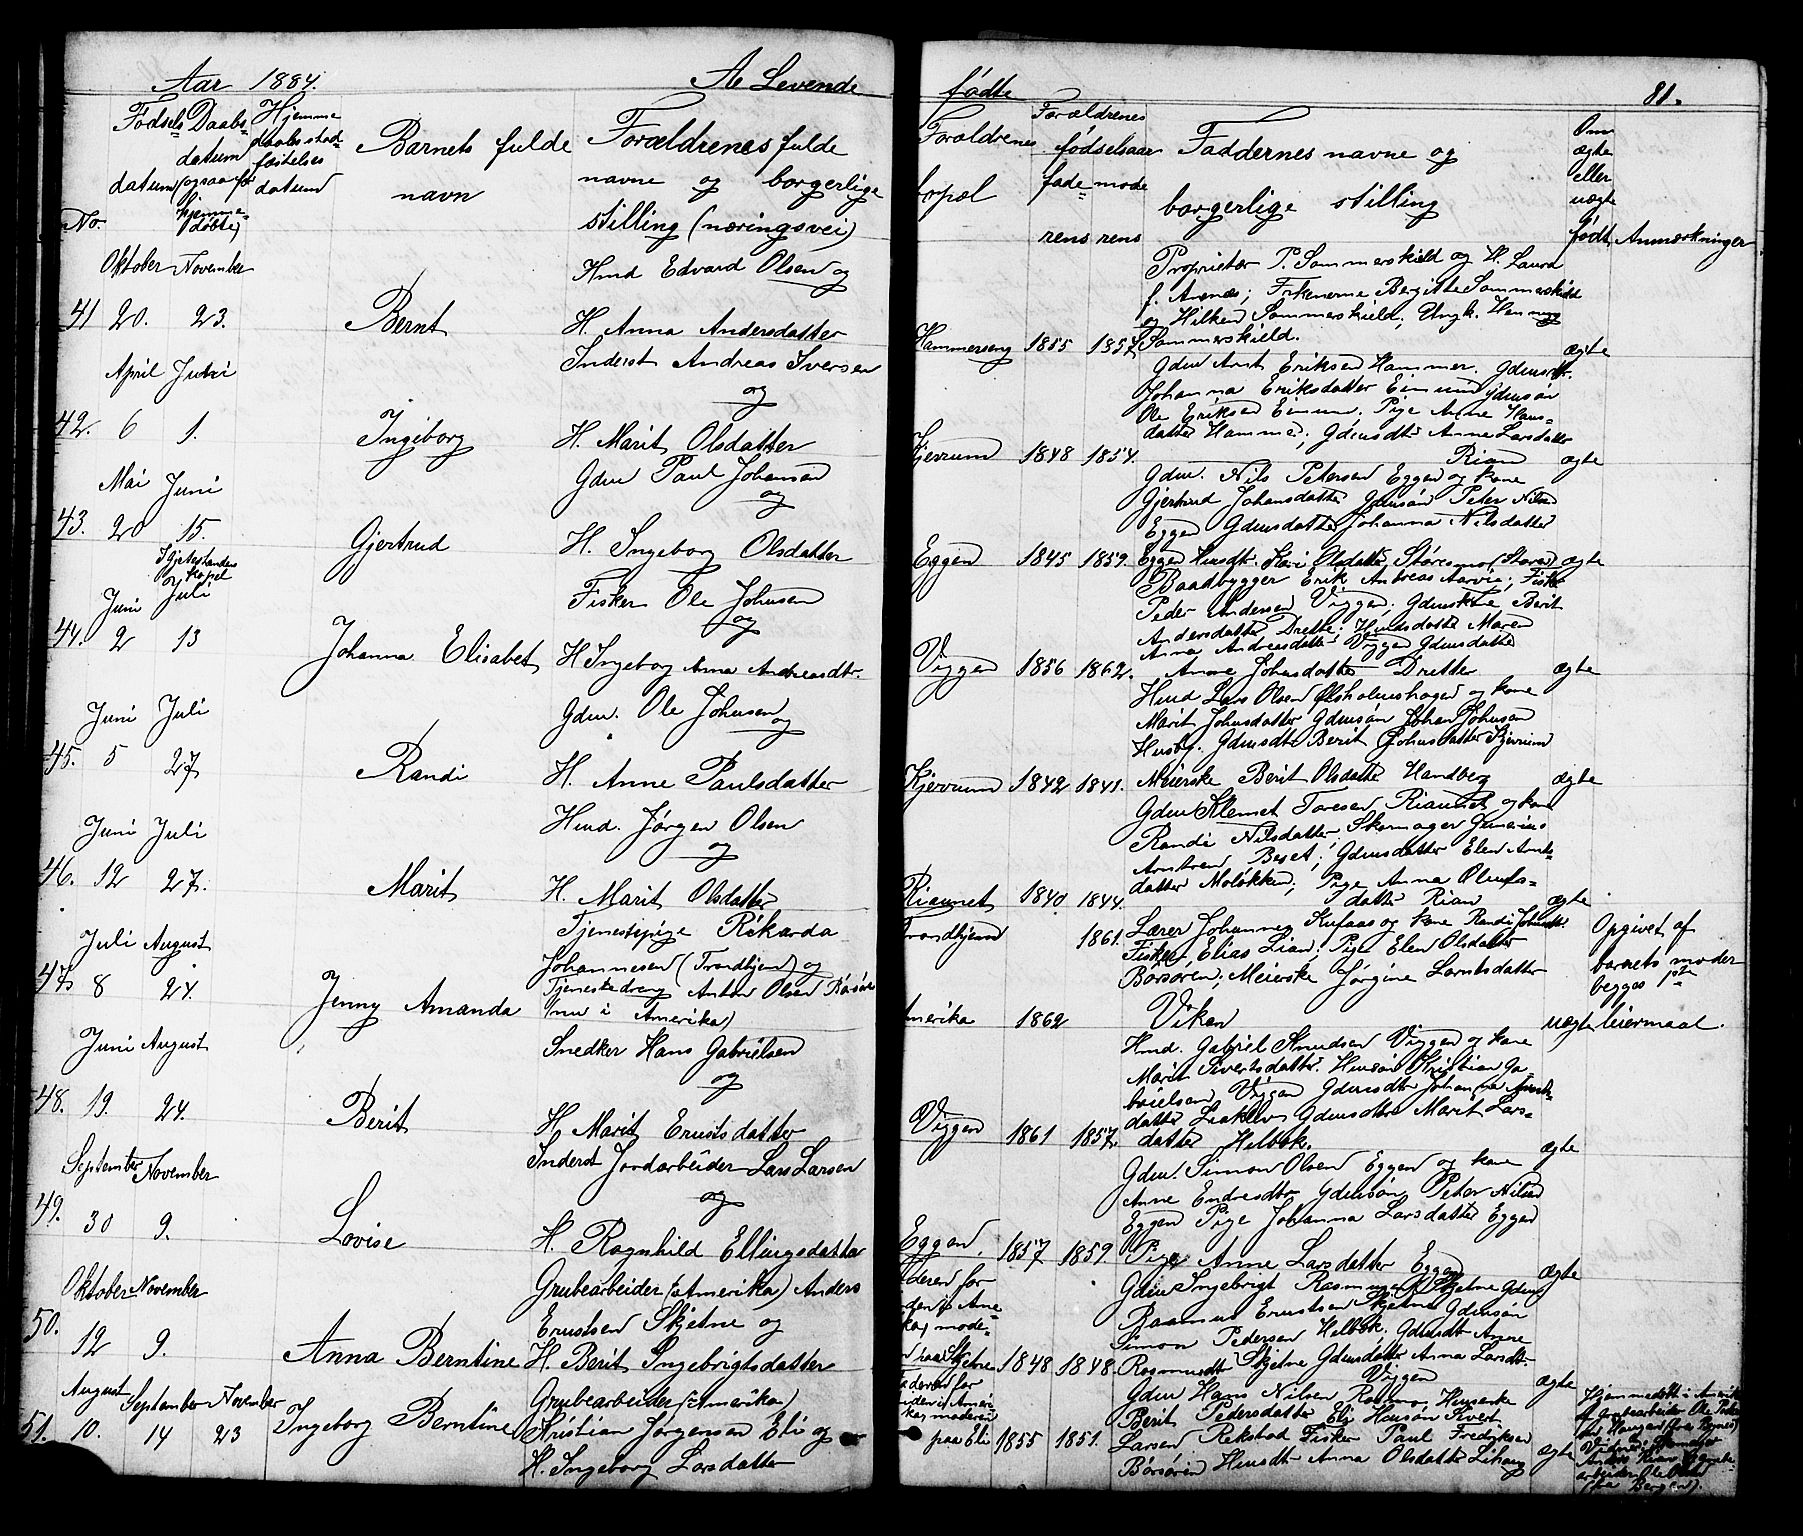 Aar 1884.
A. Levende
No.
Fødsels datum
Daabs datum (ogsaa for hjemmedøbte)
Hjemmedaabs stadfæstelses datum
Barnets fulde navn
Forældrenes fulde navne og borgerlige stilling (næringsvei)
Oktober November
Hmd Edvard Olsen og
41 20. 23. Bernt
H. Anna Andersdatter
April Juni
Inderst Andreas Iversen
og
42. 6 1. Ingeborg
H. Marit Olsdatter
Mai Juni
Gdm Paul Johansen
og
43. 20 15. Gjertrud
H. Ingeborg Olsdatter
Juni Juli
Fisker Ole Johnsen
og
44. 2 13 Johanna Elisabet
H Ingeborg Anna Andreasdt.
Juni Juli
Gdm. Ole Johnsen
og
45. 5 27 Randi
H. Anne Paulsdatter
Juni Juli
Hmd. Jørgen Olsen
og
46. 12 27. Marit
H. Marit Olsdatter
Juli August
Tjenestepige Rikarda
Johannesen (Trondhjem) og
47. 8 24. Jenny Amanda
Tjenestedreng Anton Olsen
(nu i Amerika)
Juni August
Snedker Hans Gabrielsen
og
48. 19. 24. Berit
H. Marit Ernstsdatter
September November
Inderst Jordarbeider Lars Larsen
og
49. 30 9. Lovise
H. Ragnhild Ellingsdatter
Oktober November
Grubearbeider (i Amerika) Anders
50. 12 9. Anna Berntine
Erntsen Skjetne og
H. Berit Ingebrigtsdatter
August September November
Grubearbeider (i Amerika)
51. 10. 14 23 Ingeborg Berntine
Kristian Jørgensen Eli og
H. Ingeborg Larsdatter
fødte
81.
Forældrenes bopæl
Forældrenes fødselsaar
faderens moderens
Faddernes navne og borgerlige stilling
Om ægte eller uægte født
Anmærkninger
Proprietær P. Sommerskield og H. Laura
f. Arenes; Frknerne Bergitte Sommerskield
og Hilken Sommerskield; Ungk. Henning
Hammerseng 1855 1857 Sommerskield. ægte
Gdm Arnt Eriksen Hammer. Gdmsdtr.
Johanna Eriksdatter Eimund Gdmsøn
Ole Eriksen Eimun. Pige Anne Hans-
datter Hammer; Gdmsdtr Anne Larsdatter
Kjerrum 1848 1854. Rian ægte
Gdm. Nils Petersen Eggen og kone
Gjertrud Johansdatter Gdmsøn Peter Nilsen
Eggen Gdmsdatter Johanna Nilsdatter
Eggen 1845 1859. Eggen Hmsdt. Kari Olsdatter, ægte
Baadbygger Erik Andreas; Fisker
Peder Andersen Viggen; Gdmskone Berit
Andersdatter Drette; Husmdsdatter Maren
Anna Andreasdatter Viggen Gdmsdatter
Viggen 1856 1862. Anne Johnsdatter Dretter ægte
Hmd Lars Olsen Ølsholmshagen og kone
Marit Johnsdatter Gdmsøn Johan Johnsen
Husby. Gdmsdtr Berit Johnsdatter Kjerrum
Kjerrum 1842 1841. Meierske Berit Olsdatter Handberg ægte
Gdm Klemet Toresen Riaunet og kone
Randi Nilsdatter; Skomager
Beset; Gdmsdatter Elen Arnts-
datter Moløkken; Pige Anna Olufs-
Riaunet 1840 1844. datter Rian ægte
Trondhjem 1861. Lærer Johannes Kufaas og kone Randi
Fisker Elias Lian; Pige Elen Olsdatter
Børsøren; Meierske Jørgine Larntsdatter
Amerika 1862 Viken uægte
Opgivet af
barnets moder
begges 1ste
leiermaal.
Hmd. Gabriel Knudsen Viggen og kone
Marit Sivertsdatter. Hmsøn Kristian Ga-
brielsen Viggen Gdmsdtr Johanna
datter Gdmsdtr Marit Lars-
Viggen 1861 1857. datter Helbek. ægte
Gdm. Simon Olsen Eggen og kone
Anne Endresdtr Gdmsøn Peter Nilsen
Eggen Pige Johanna Larsdatter Eggen
Eggen, 1857 1859 Pige Anne Larsdatter Eggen ægte
Gdm Ingebrigt Rasmusen Skjetne Gdm
Rasmus Erntsen Skjetne Gdmsøn
Simon Pedersen Helbek. Gdmsdt. Anne
1848 1848. Rasmusdt. Skjetne Gdmsdatter Anna Larsdt.
Viggen ægte
Gdm Hans Nilsen
Berit Pedersdatter Eli Hmsøn Sivert
paa Eli 1855 1851. Larsen Rekstad Fisker Paul Fredriksen
Børsøren Hmsdt. Anna Olsdatter ægte
Hjemmedøbt i Amerika
af Grubearbeider Ole